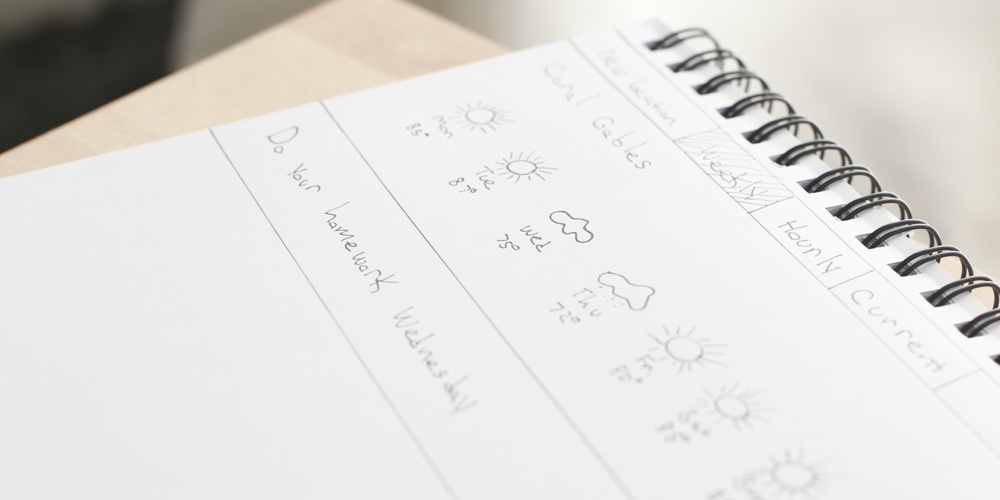 New Location Weekly Hourly Current
Coral Gables
Mon Tue Wed Thu Fri
85° 87° 75° 72° 80°
Do Your homework Wednesday